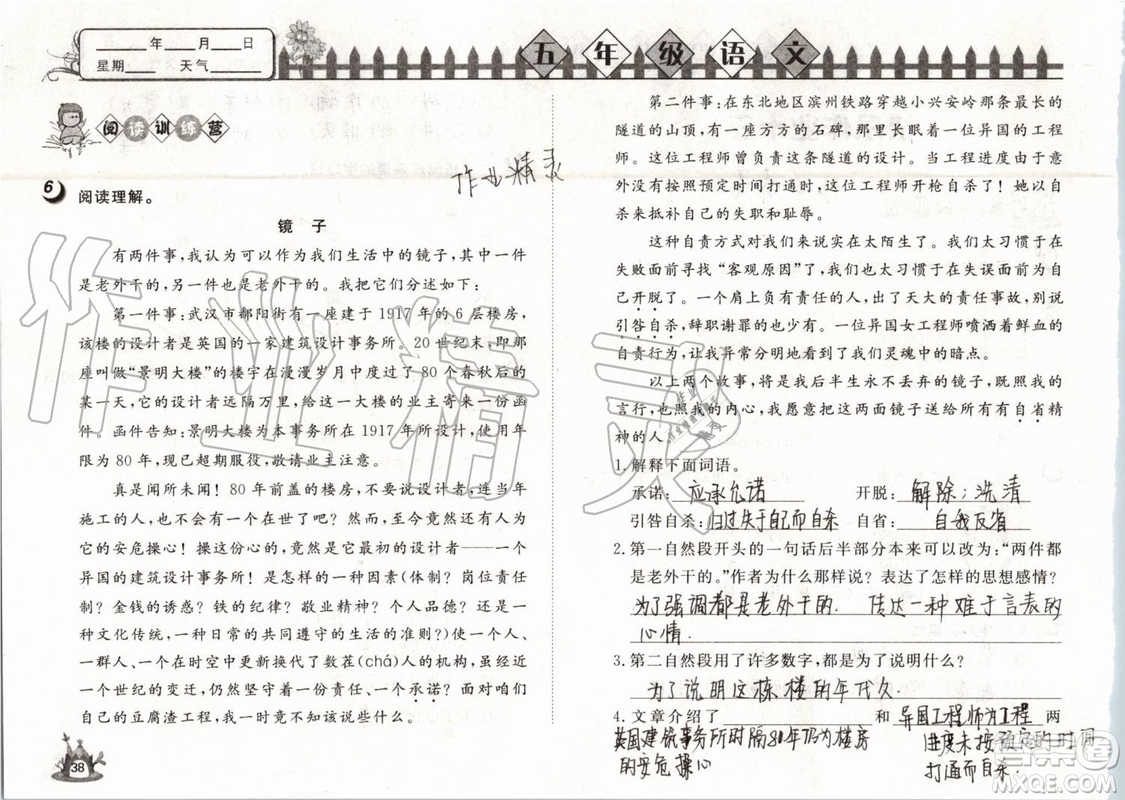 ____年____月____日
星期____ 天气____
五年级语文
阅读训练营
作业精灵
6 阅读理解。
镜 子
有两件事,我认为可以作为我们生活中的镜子,其中一件
是老外干的,另一件也是老外干的。我把它们分述如下:
第一件事:武汉市鄱阳街有一座建于1917年的6层楼房,
该楼的设计者是英国的一家建筑设计事务所。20世纪末,即
那座叫做“景明大楼”的楼宇在漫漫岁月中度过了80个春秋后的
某一天,它的设计者远隔万里,给这一大楼的业主寄来一份函
件。函件告知:景明大楼为本事务所在1917年所设计,使用年
限为80年,现已超期服役,敬请业主注意。
真是闻所未闻!80年前盖的楼房,不要说设计者,连当年
施工的人,也不会有一个在世了吧?然而,至今竟然还有人为
它的安危操心!操这份心的,竟然是它最初的设计者——一个
异国的建筑设计事务所!是怎样的一种因素(体制?岗位责任
制?金钱的诱惑?铁的纪律?敬业精神?个人品德?还是一
种文化传统,一种日常的共同遵守的生活的准则?)使一个人、
一群人、一个在时空中更新换代了数茬(chá)人的机构,虽历经
一个世纪的变迁,仍然坚守着一份责任、一个承诺?面对咱们
自己的豆腐渣工程,我一时竟不知该说些什么。
38
第二件事:在东北地区滨州铁路穿越小兴安岭那条最长的
隧道的山顶,有一座方方的石碑,那里长眠着一位异国的工程
师。这位工程师曾负责这条隧道的设计。当工程进度由于意
外没有按照预定时间打通时,这位工程师开枪自杀了!她以自
杀来抵补自己的失职和耻辱。
这种自责方式对我们来说实在太陌生了。我们太习惯于在
失败时寻找“客观原因”了,我们也太习惯于在失误面前为自
己开脱了。一个肩上负有责任的人,出了天大的责任事故,别说
引咎自杀,辞职谢罪的也少有。一位异国女工程师喷洒着鲜血的
自责行为,让我异常分明地看到了我们灵魂中的暗点。
以上两个故事,将是我后半生永不丢弃的镜子,既照我的
言行,也照我的内心,我愿意把这两面镜子送给所有有自省精
神的人。
1.解释下面词语。
承诺:应承允诺 开脱:解除;洗清
引咎自杀:归过失于自己而自杀 自省:自我反省
2.第一自然段开头的一句话后半部分本来可以改为:“两件都
是老外干的。”作者为什么那样说?表达了怎样的思想感情?
为了强调都是老外干的. 传达一种难于言表的
心情.
3.第二自然段用了许多数字,都是为了说明什么?
为了说明这栋楼的年代久.
4.文章介绍了____和异国工程师为工程两
英国建筑事务所时隔80年仍为楼房 进度未按预定的时间
的安危操心 打通而自杀.
作业精灵
答案圈
MXQE.COM